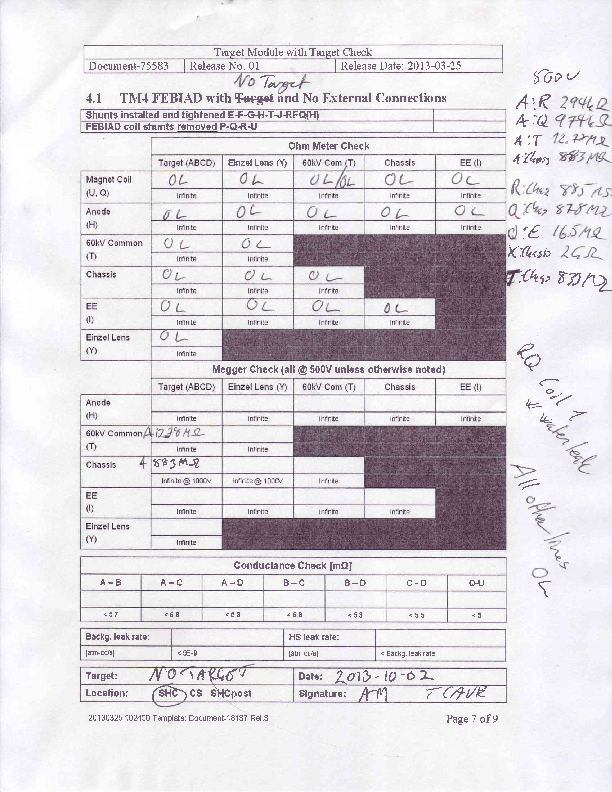 Target Module with Target Check
Document-75583 Release No. 01 Release Date: 2013-03-25
No Target
4.1 TM4 FEBIAD with Target and No External Connections
Shunts installed and tightened E-F-G-H-T-J-RFQ(H)
FEBIAD coil shunts removed P-Q-R-U
Ohm Meter Check
Target (ABCD) Einzel Lens (Y) 60kV Com (T) Chassis EE (I)
Magnet Coil OL OL OL/OL OL OL
(U, Q) Infinite Infinite Infinite Infinite Infinite
Anode OL OL OL OL OL
(H) Infinite Infinite Infinite Infinite Infinite
60kV Common OL OL
(T) Infinite Infinite
Chassis OL OL OL
Infinite Infinite Infinite
EE OL OL OL OL
(I) Infinite Infinite Infinite Infinite
Einzel Lens OL
(Y) Infinite
Megger Check (all @ 500V unless otherwise noted)
Target (ABCD) Einzel Lens (Y) 60kV Com (T) Chassis EE (I)
Anode
(H) Infinite Infinite Infinite Infinite Infinite
60kV Common A 12.78 MΩ
(T) Infinite Infinite
Chassis A 883 MΩ
Infinite @ 1000V Infinite @ 1000V Infinite
EE
(I) Infinite Infinite Infinite Infinite
Einzel Lens
(Y) Infinite
Conductance Check [mΩ]
A – B A – C A – D B – C B – D C – D O-U
Backg. leak rate: HS leak rate:
[atm-cc/s] < 5E-9 [atm-cc/s] < Backg. leak rate
Target: NO TARGET Date: 2013-10-02
Location: SHC CS SHCpost Signature: AM
Page 7 of 9
500V
A:R 294GΩ
A:Q 974GΩ
A:Chass 883MΩ
Q:Chass 878MΩ
Q:E 16.5MΩ
X:Chassis 2GΩ
T:Chass 833MΩ
RQ Coil 1
w/ water leak
All other lines
OL